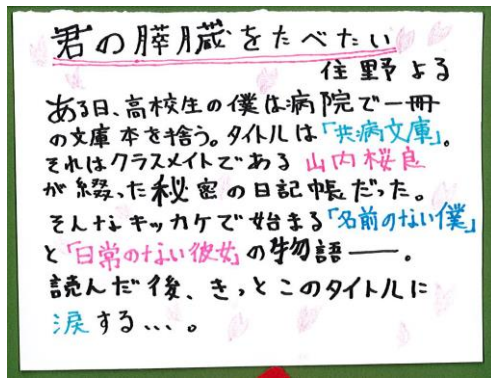 君の膵臓をたべたい
住野よる
ある日、高校生の僕は病院で一冊
の文庫本を拾う。タイトルは「共病文庫」。
それはクラスメイトである山内桜良
が綴った秘密の日記帳だった。
そんなキッカケで始まる「名前のない僕」
と「日常のない彼女」の物語――。
読んだ後、きっとこのタイトルに
涙する...。